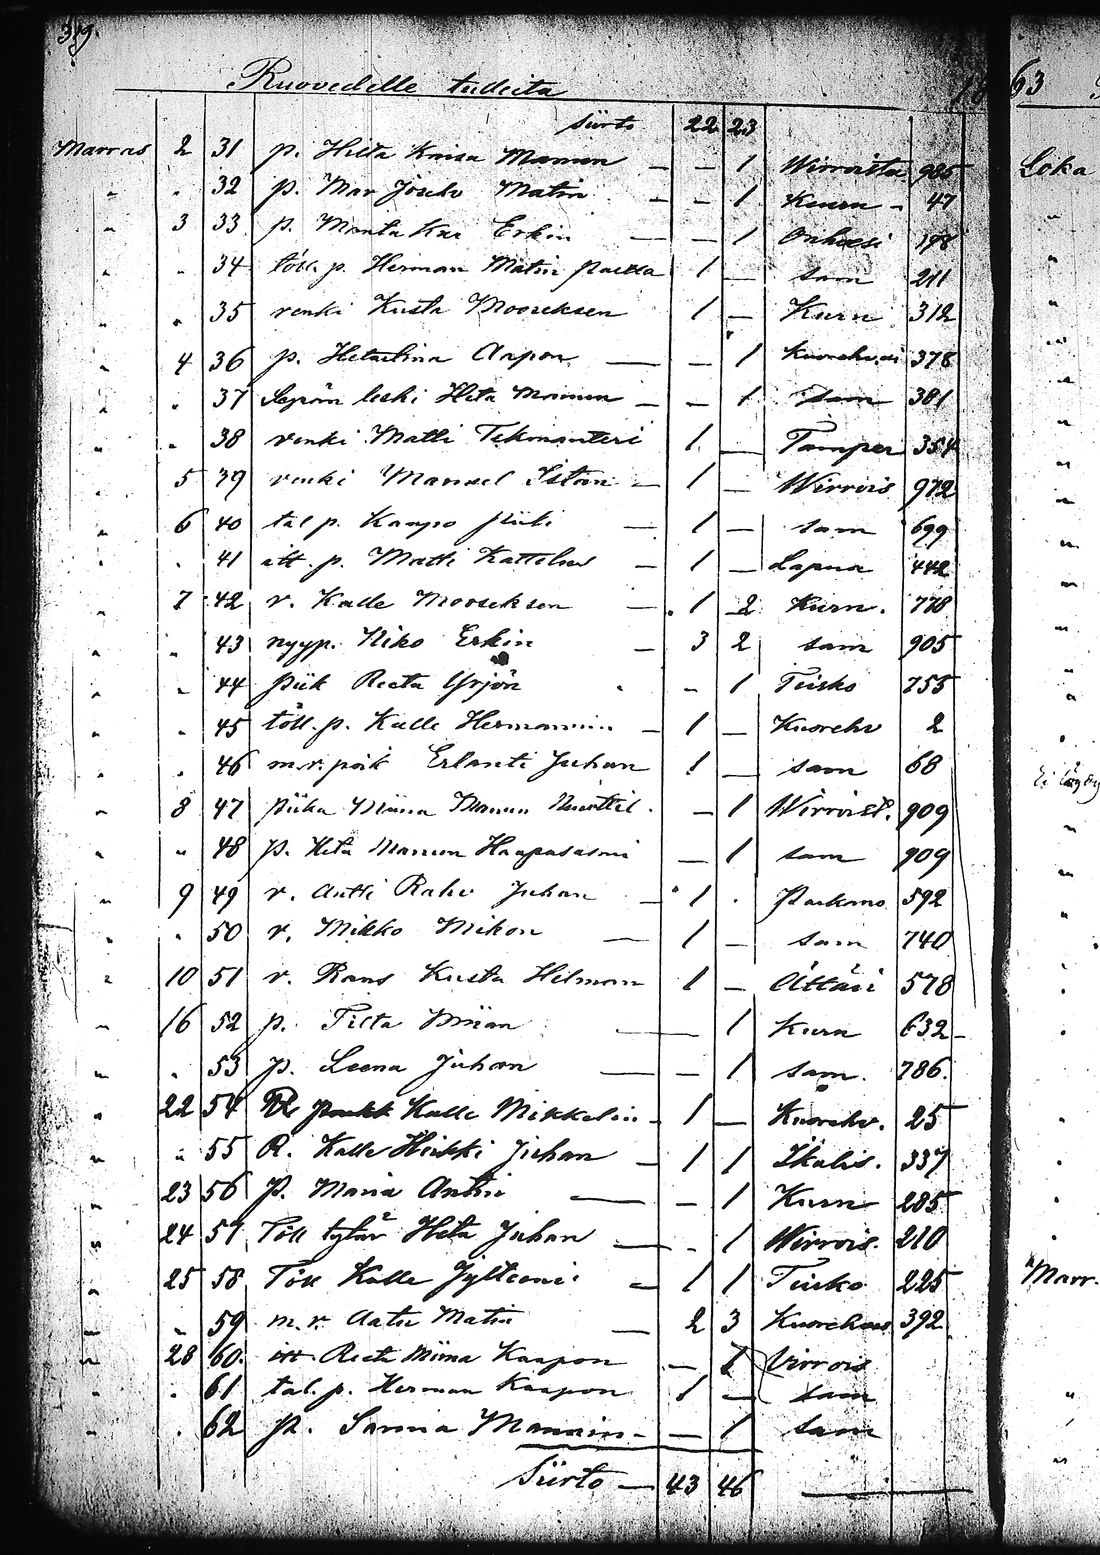 319.
Ruovedelle tulleita 1863
Siirto 22 23
Marras 2 31 p. Hilta Kaisa Mannun — — 1 Wirroista 985
" " 32 p. Mar Josehv Matin — — 1 Keuru - 47
" 3 33 p. Manta Kar Erkin — — 1 Onkvesi 198
" " 34 töll. p. Herman Matin 1 — sam 211
" " 35 renki Kusta Mooseksen 1 — Kuru 312
" 4 36 p. Hetastina Aapon — — 1 Kuorehvesi 378
" " 37 leski Heta Mannun — — 1 sam 381
" " 38 renki Matti 1 — Tamper 354
" 5 39 renki Manuel — 1 — Wirrois 972
" 6 40 tal p. Kaapo — 1 — sam 699
" " 41 itt. p. Matti — 1 — Lapua 442
" 7 42 v. Kalle Mooseksen — 1 2 Kuru. 778
" " 43 nyyp. Niko Erkin — 3 2 sam 905
" " 44 piik Reeta Yrjön - 1 Teisko 755
" " 45 töll. p. Kalle Hermannin — 1 — Kuorehv 2
" " 46 m.v. poik Erlanti Juhan 1 — sam 68
" 8 47 piika Miina Mannun — 1 Wirroist. 909
" " 48 p. Heta Mannun Haapasalmi — 1 sam 909
" 9 49 v. Antti Rahv Juhan — 1 . Parkano 592
" " 50 v. Mikko Mikon — 1 — sam 740
" 10 51 v. Rans Kusta Hilman 1 — Ättäri 578
" 16 52 p. Tilta Miian — — 1 Kuru 632
" " 53 p. Leena Juhan — — 1 sam. 786.
" 22 54 Kalle Mikkelin - 1 — Kuorehv. 25
" " 55 R. Kalle Heikki Juhan — 1 1 Ikalis. 337
" 23 56 p. Maria Antin — - 1 Kuru 285
" 24 57 Töll tytär Heta Juhan — - 1 Wirrois. 210
" 25 58 Töll Kalle — 1 1 Teisko 225
" " 59 m.v. Aatu Matin — 2 3 Kuorehves 392
" 28 60. Reeta Miina Kaapon — 1 Virrois
" " 61 tal. p. Herman Kaapon 1 — sam
" " 62 p. Sanna Mannin - — 1 sam
Siirto — 43 46
Loka
Marr.